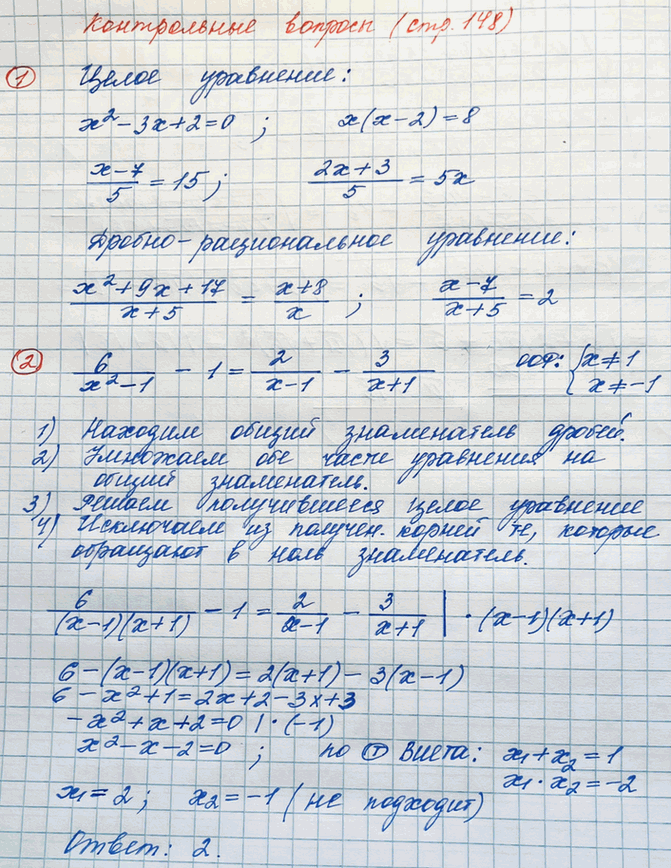 Контрольные вопросы (стр. 148)
① Целое уравнение:
x² - 3x + 2 = 0 ; x(x - 2) = 8
(x - 7)/5 = 15 ; (2x + 3)/5 = 5x
Дробно-рациональное уравнение:
(x² + 9x + 17)/(x + 5) = (x + 8)/x ; (x - 7)/(x + 5) = 2
② 6/(x² - 1) - 1 = 2/(x - 1) - 3/(x + 1) ООФ: { x ≠ 1
x ≠ -1
1) Находим общий знаменатель дробей.
2) Умножаем обе части уравнения на
общий знаменатель.
3) Решаем получившееся целое уравнение
4) Исключаем из получен. корней те, которые
обращают в ноль знаменатель.
6/((x - 1)(x + 1)) - 1 = 2/(x - 1) - 3/(x + 1) | · (x - 1)(x + 1)
6 - (x - 1)(x + 1) = 2(x + 1) - 3(x - 1)
6 - x² + 1 = 2x + 2 - 3x + 3
- x² + x + 2 = 0 | · (-1)
x² - x - 2 = 0 ; по Ⓣ Виета: x₁ + x₂ = 1
x₁ · x₂ = -2
x₁ = 2 ; x₂ = -1 (не подходит)
Ответ: 2.